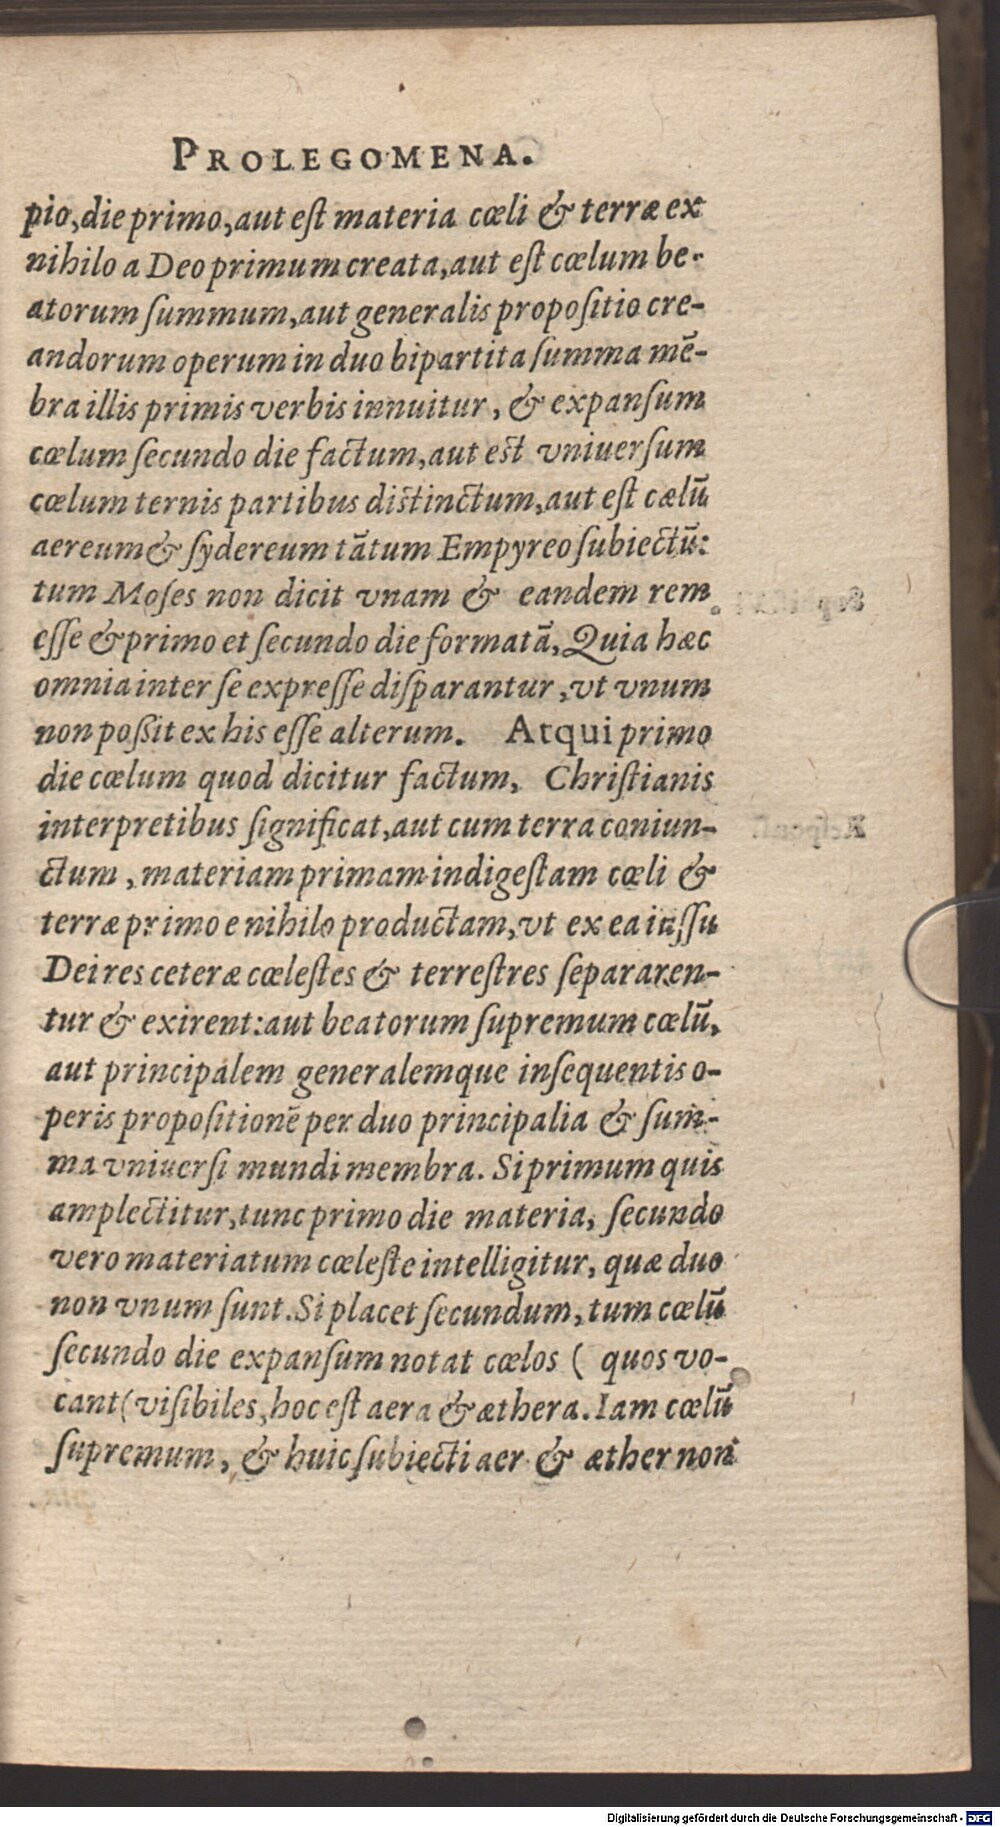 PROLEGOMENA.
pio, die primo, aut eſt materia cœli & terræ ex
nihilo a Deo primum creata, aut eſt cœlum be-
atorum ſummum, aut generalis propoſitio cre-
andorum operum in duo bipartita ſumma mē-
bra illis primis verbis innuitur, & expanſum
cœlum ſecundo die factum, aut est vniuerſum
cœlum ternis partibus diſtinctum, aut eſt cœlū
aereum & ſydereum tātum Empyreo ſubiectū:
tum Moſes non dicit vnam & eandem rem
eſſe & primo et ſecundo die formatā, Quia hæc
omnia inter ſe expreſſe diſparantur, vt vnum
non poßit ex his eſſe alterum. Atqui primo
die cœlum quod dicitur factum, Chriſtianis
interpretibus ſignificat, aut cum terra coniun-
ctum, materiam primam indigeſtam cœli &
terræ primo e nihilo productam, vt ex ea iuſſu
Dei res ceteræ cœleſtes & terreſtres ſepararen-
tur & exirent: aut beatorum ſupremum cœlū,
aut principalem generalemque inſequentis o-
peris propoſitionē per duo principalia & ſum-
ma vniuerſi mundi membra. Si primum quis
amplectitur, tunc primo die materia, ſecundo
vero materiatum cœleſte intelligitur, quæ duo
non vnum ſunt. Si placet ſecundum, tum cœlū
ſecundo die expanſum notat cœlos ( quos vo-
cant ( viſibiles, hoc eſt aera & æthera. Iam cœlū
ſupremum, & huic ſubiecti aer & æther non
Digitalisierung gefördert durch die Deutsche Forschungsgemeinschaft - DFG